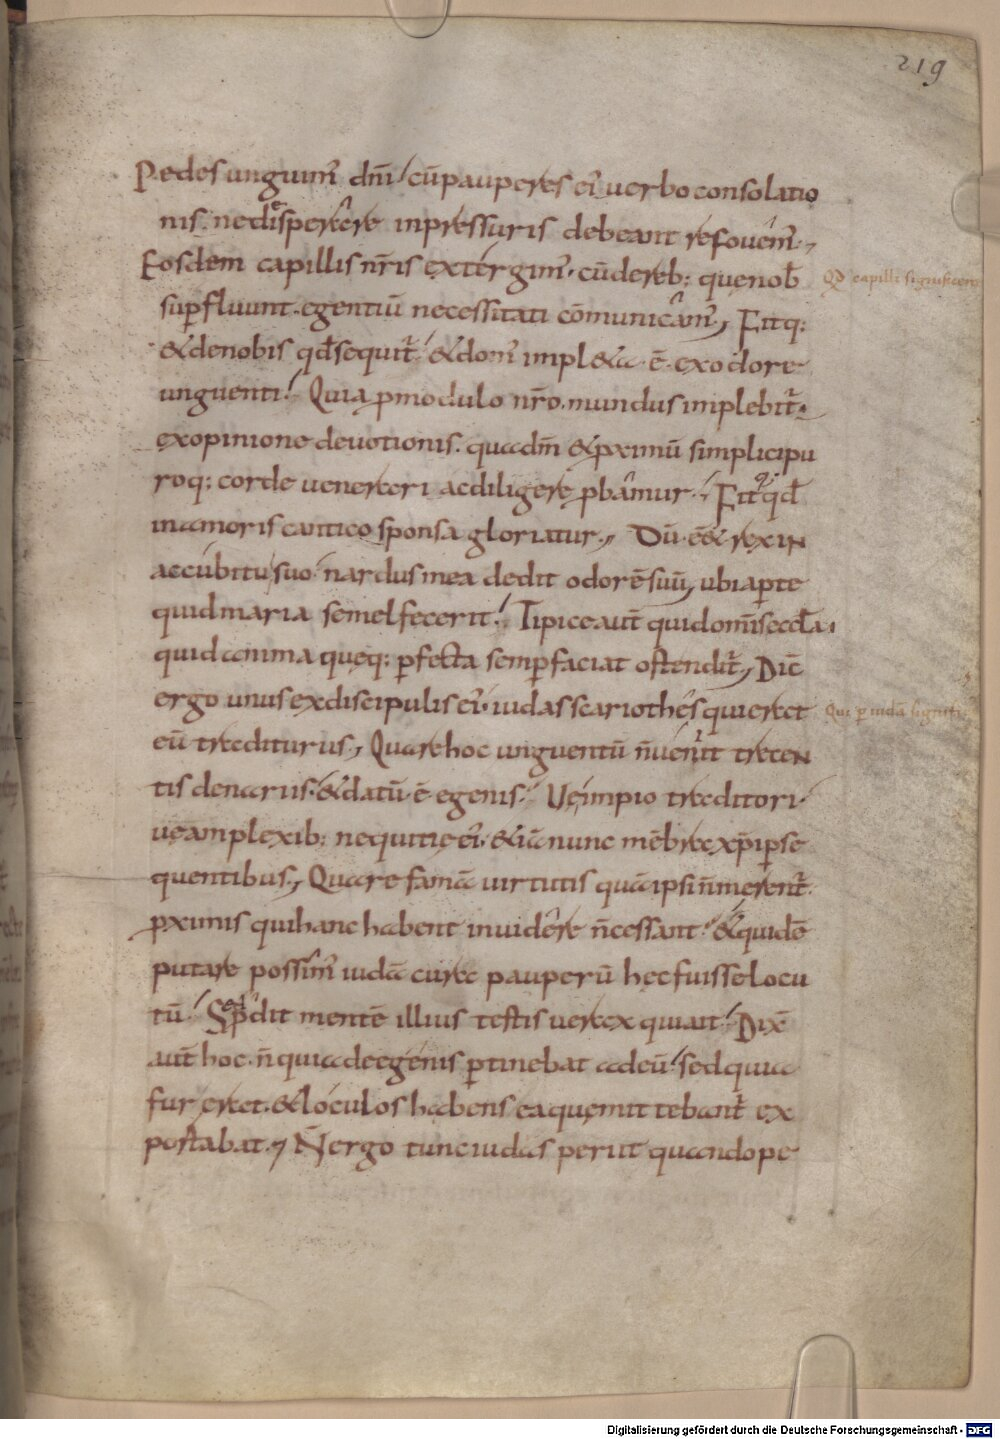 219
Pedes unguim' dñi cū pauperes ei' uerbo consolatio
nis. ne desperare in pressuris debeant refouem'.
Eosdem capillis nr̄is extergim'. cū de reb; que nob̄
sup̱fluunt. egentiū necessitati cōmunicam', Fitq;
& de nobis qd̄ sequit̄ & dom' impl&a .ē. ex odore
unguenti. Quia p̱ modulo nr̄o. mundus implebit̄.
ex opinione deuotionis. qua dm̄ & pximū simplici pu
roq; corde uenerari ac diligere p̱bamur. Fitq; qd̄
in amoris cantico sponsa gloriatur., Dū ē& rex IN
accubitu suo. nardus mea dedit odorē suū, ubi ap̱te
quid maria semel fecerit. Tipice aut̄ quid om̄is eccl̄a.
quid anima queq; p̱fecta semp̱ faciat ostendit̄, Dic̄
ergo unus ex discipulis ei'. iudas scariothes qui erat
eū traditurus, Quare hoc unguentū n̄ uenit treceN
tis denariis. & datū .ē. egenis. Ue impio traditori
ue amplexib; nequitie ei'. & iā nunc mēbra xp̄i p̱se
quentibus, Quare famā uirtutis quā ipsi n̄ merent̄.
pximis qui hanc habent inuidere n̄ cessant. & quidē
putare possim' iudā cura pauperū hec fuisse locu
tū. S; p̱dit mentē illius testis uerax qui ait. Dix̄
aut̄ hoc. n̄ quia de egenis p̱tinebat ad eū. sed quia
fur erat. & loculos habens ea que mittebant̄ ex
portabat., N̄ ergo tunc iudas periit quando pe
Qd̄ capilli significent
Qui p̱ iudā signifi
Digitalisierung gefördert durch die Deutsche Forschungsgemeinschaft - DFG